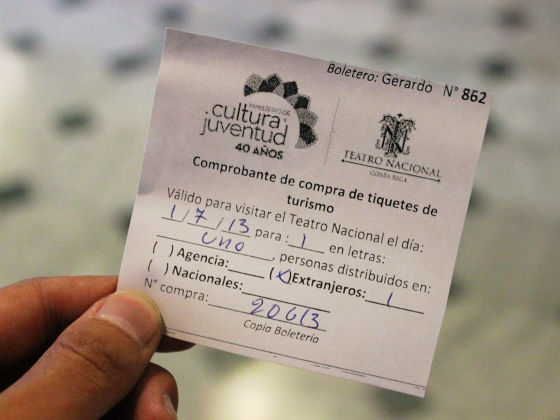 Boletero: Gerardo N° 862
MINISTERIO DE
cultura y
juventud
40 AÑOS
TEATRO NACIONAL
COSTA RICA
Comprobante de compra de tiquetes de
turismo
Válido para visitar el Teatro Nacional el día:
1/7/13 para: 1 en letras:
uno, personas distribuidos en:
( ) Agencia: (x) Extranjeros: 1
( ) Nacionales:
N° compra: 20613
Copia Boletería